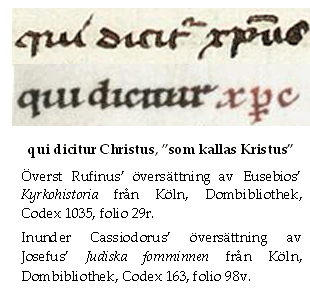 qui dicit᷑ xp̅us
qui dicitur xp̅c
qui dicitur Christus, ”som kallas Kristus”
Överst Rufinus’ översättning av Eusebios’
Kyrkohistoria från Köln, Dombibliothek,
Codex 1035, folio 29r.
Inunder Cassiodorus’ översättning av
Josefus’ Judiska fornminnen från Köln,
Dombibliothek, Codex 163, folio 98v.